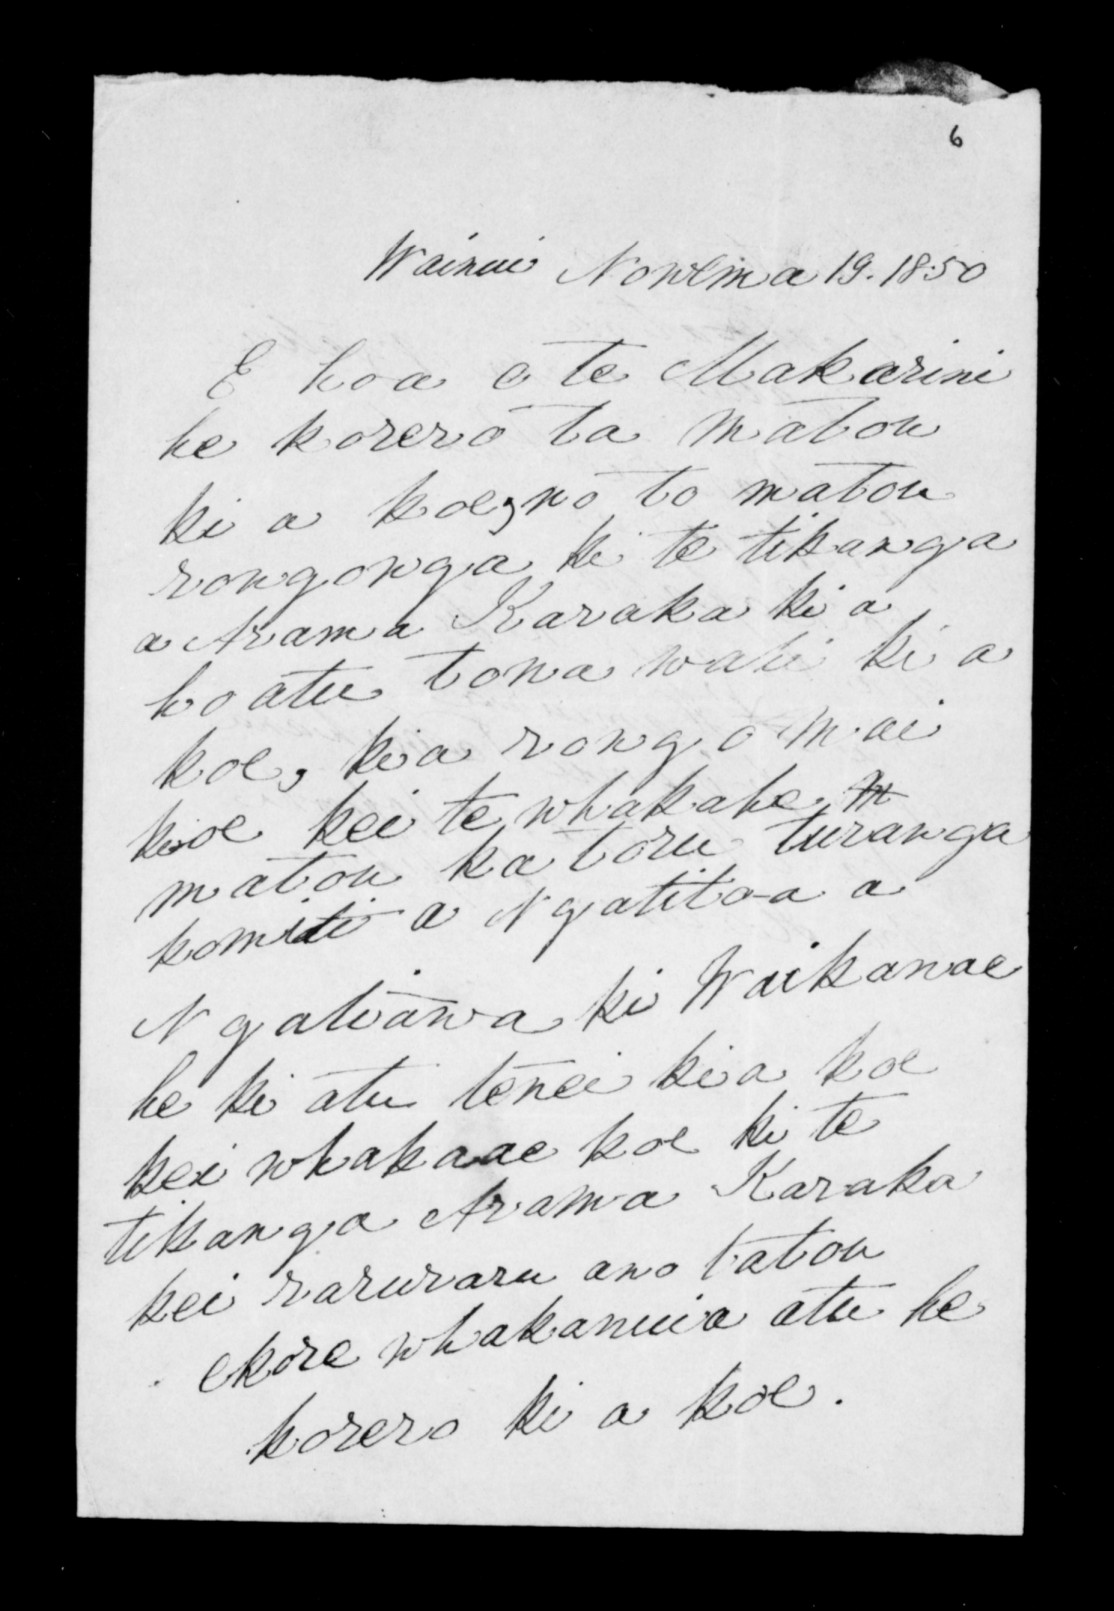 6
Wainui Nowema 19. 18.50
E hoa e te Makarini
he korero ta matou
ki a koe, no to matou
rongonga ki te tikanga
a Arama Karaka ki a
hoatu tona wahi ki a
koe, kia rongo mai
koe kei te whakahe m
matou ka toru turanga
komiti a Ngatitoa a
Ngatiawa ki Waikanae
he ki atu tenei kia koe
kei whakaaae koe ki te
tikanga Arama Karaka
kei raruraru ano tatou
ekore whakanuia atu he
korero ki a koe.